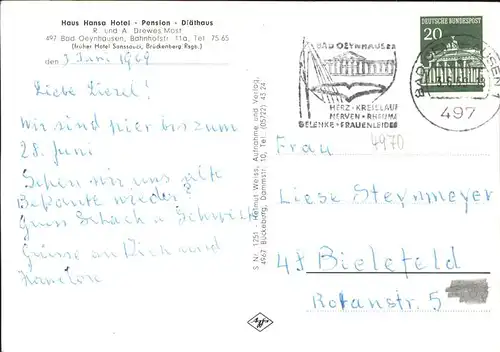 Haus Hansa Hotel - Pension - Diäthaus
R. und A. Drewes Most
497 Bad Oeynhausen, Bahnhofstr. 11a, Tel. 75 65
(früher Hotel Sanssouci, Brückenberg Rsgb.)
den 3. Juni 1969
Liebe Liesel!
Wir sind hier bis zum
28. Juni
Sehen wir uns alte
Bekannte wieder?
Gruss
Grüsse an Dick und
S Nr. 1751 - Helmut Weiss, Aufnahme und Verlag,
4967 Bückeburg, Dammstr. 10, Tel. (05722) 45 24
BAD OEYNHAUSEN
HERZ·KREISLAUF
NERVEN·RHEUMA
GELENKE·FRAUENLEIDEN
DEUTSCHE BUNDESPOST
20
BAD OEYNHAUSEN 1
497
4970
Frau
Liese Steynmeyer
48 Bielefeld
Rotanstr. 5